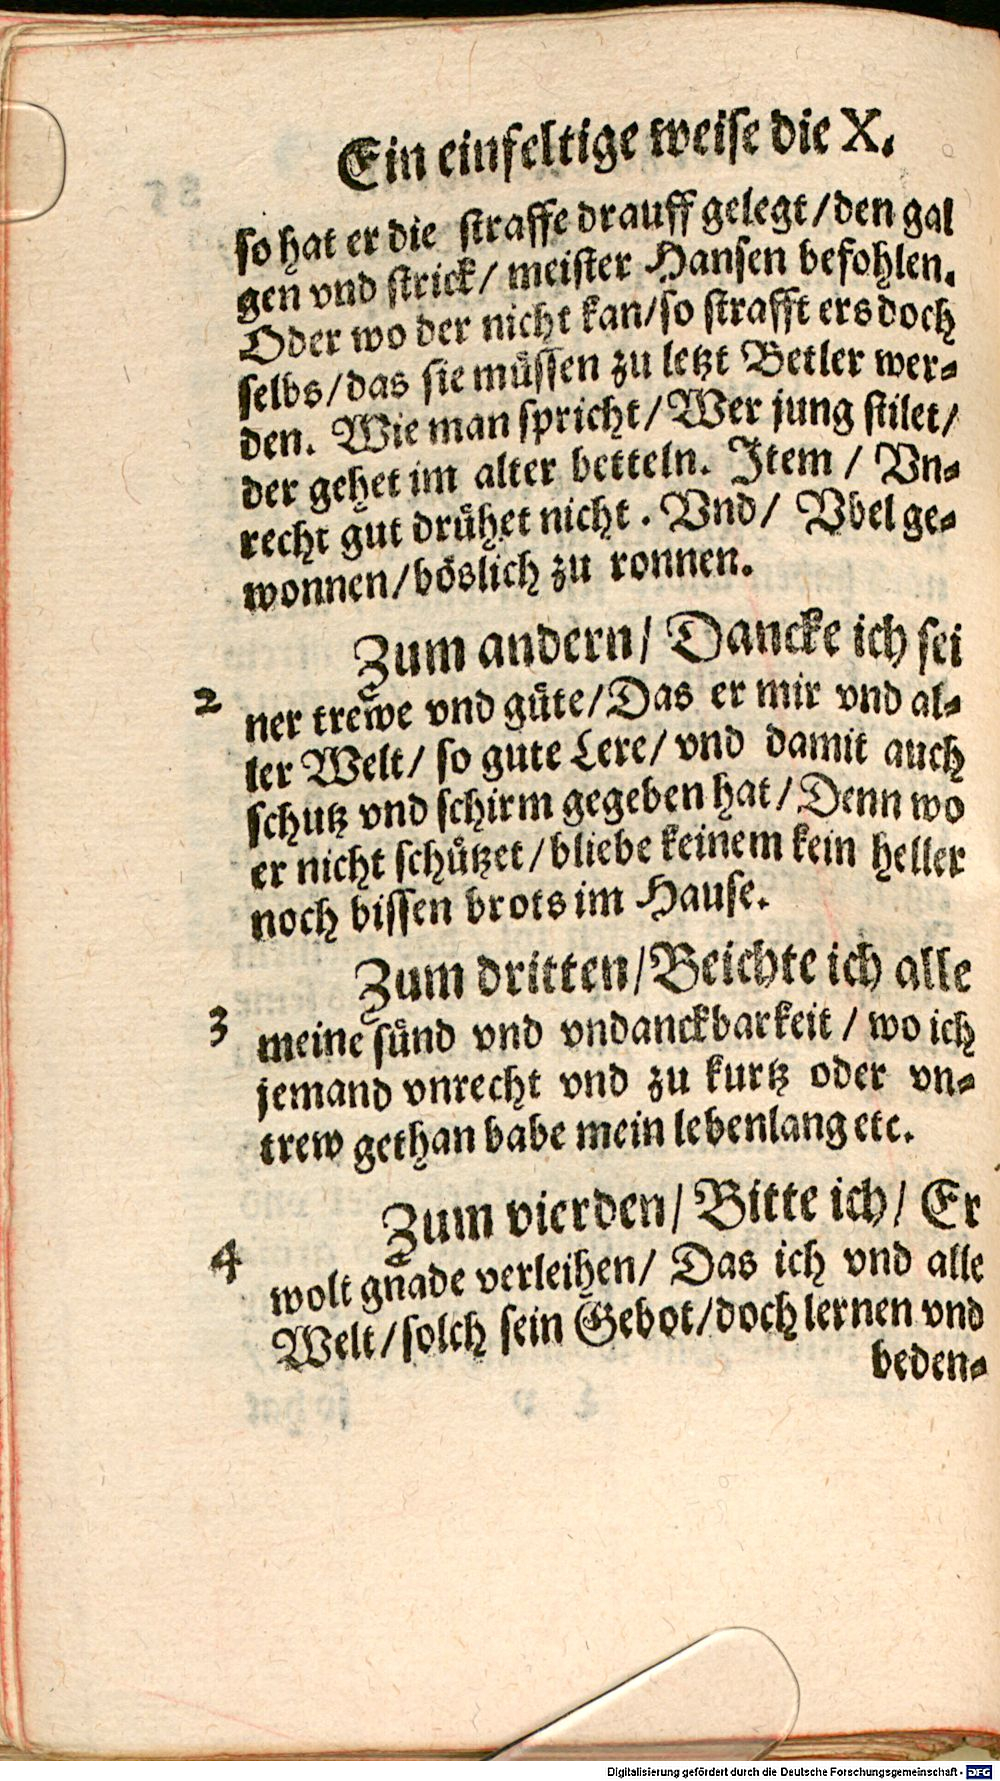 Ein einfeltige weise die X.
so hat er die straffe drauff gelegt/den gal
gen vnd strick/ meister Hansen befohlen.
Oder wo der nicht kan/so strafft ers doch
selbs/das sie müssen zu letzt Betler wer=
den. Wie man spricht/Wer jung stilet/
der gehet im alter betteln. Item / Vn=
recht gut drühet nicht. Vnd/ Vbel ge=
wonnen/böslich zu ronnen.
Zum andern/ Dancke ich sei
2 ner trewe vnd güte/Das er mir vnd al=
ler Welt/ so gute Lere/ vnd damit auch
schutz vnd schirm gegeben hat/Denn wo
er nicht schützet/bliebe keinem kein heller
noch bissen brots im Hause.
Zum dritten/Beichte ich alle
3 meine sünd vnd vndanckbarkeit / wo ich
jemand vnrecht vnd zu kurtz oder vn=
trew gethan babe mein lebenlang etc.
Zum vierden/ Bitte ich/ Er
4 wolt gnade verleihen/ Das ich vnd alle
Welt/solch sein Gebot/doch lernen vnd
beden=
Digitalisierung gefördert durch die Deutsche Forschungsgemeinschaft - DFG